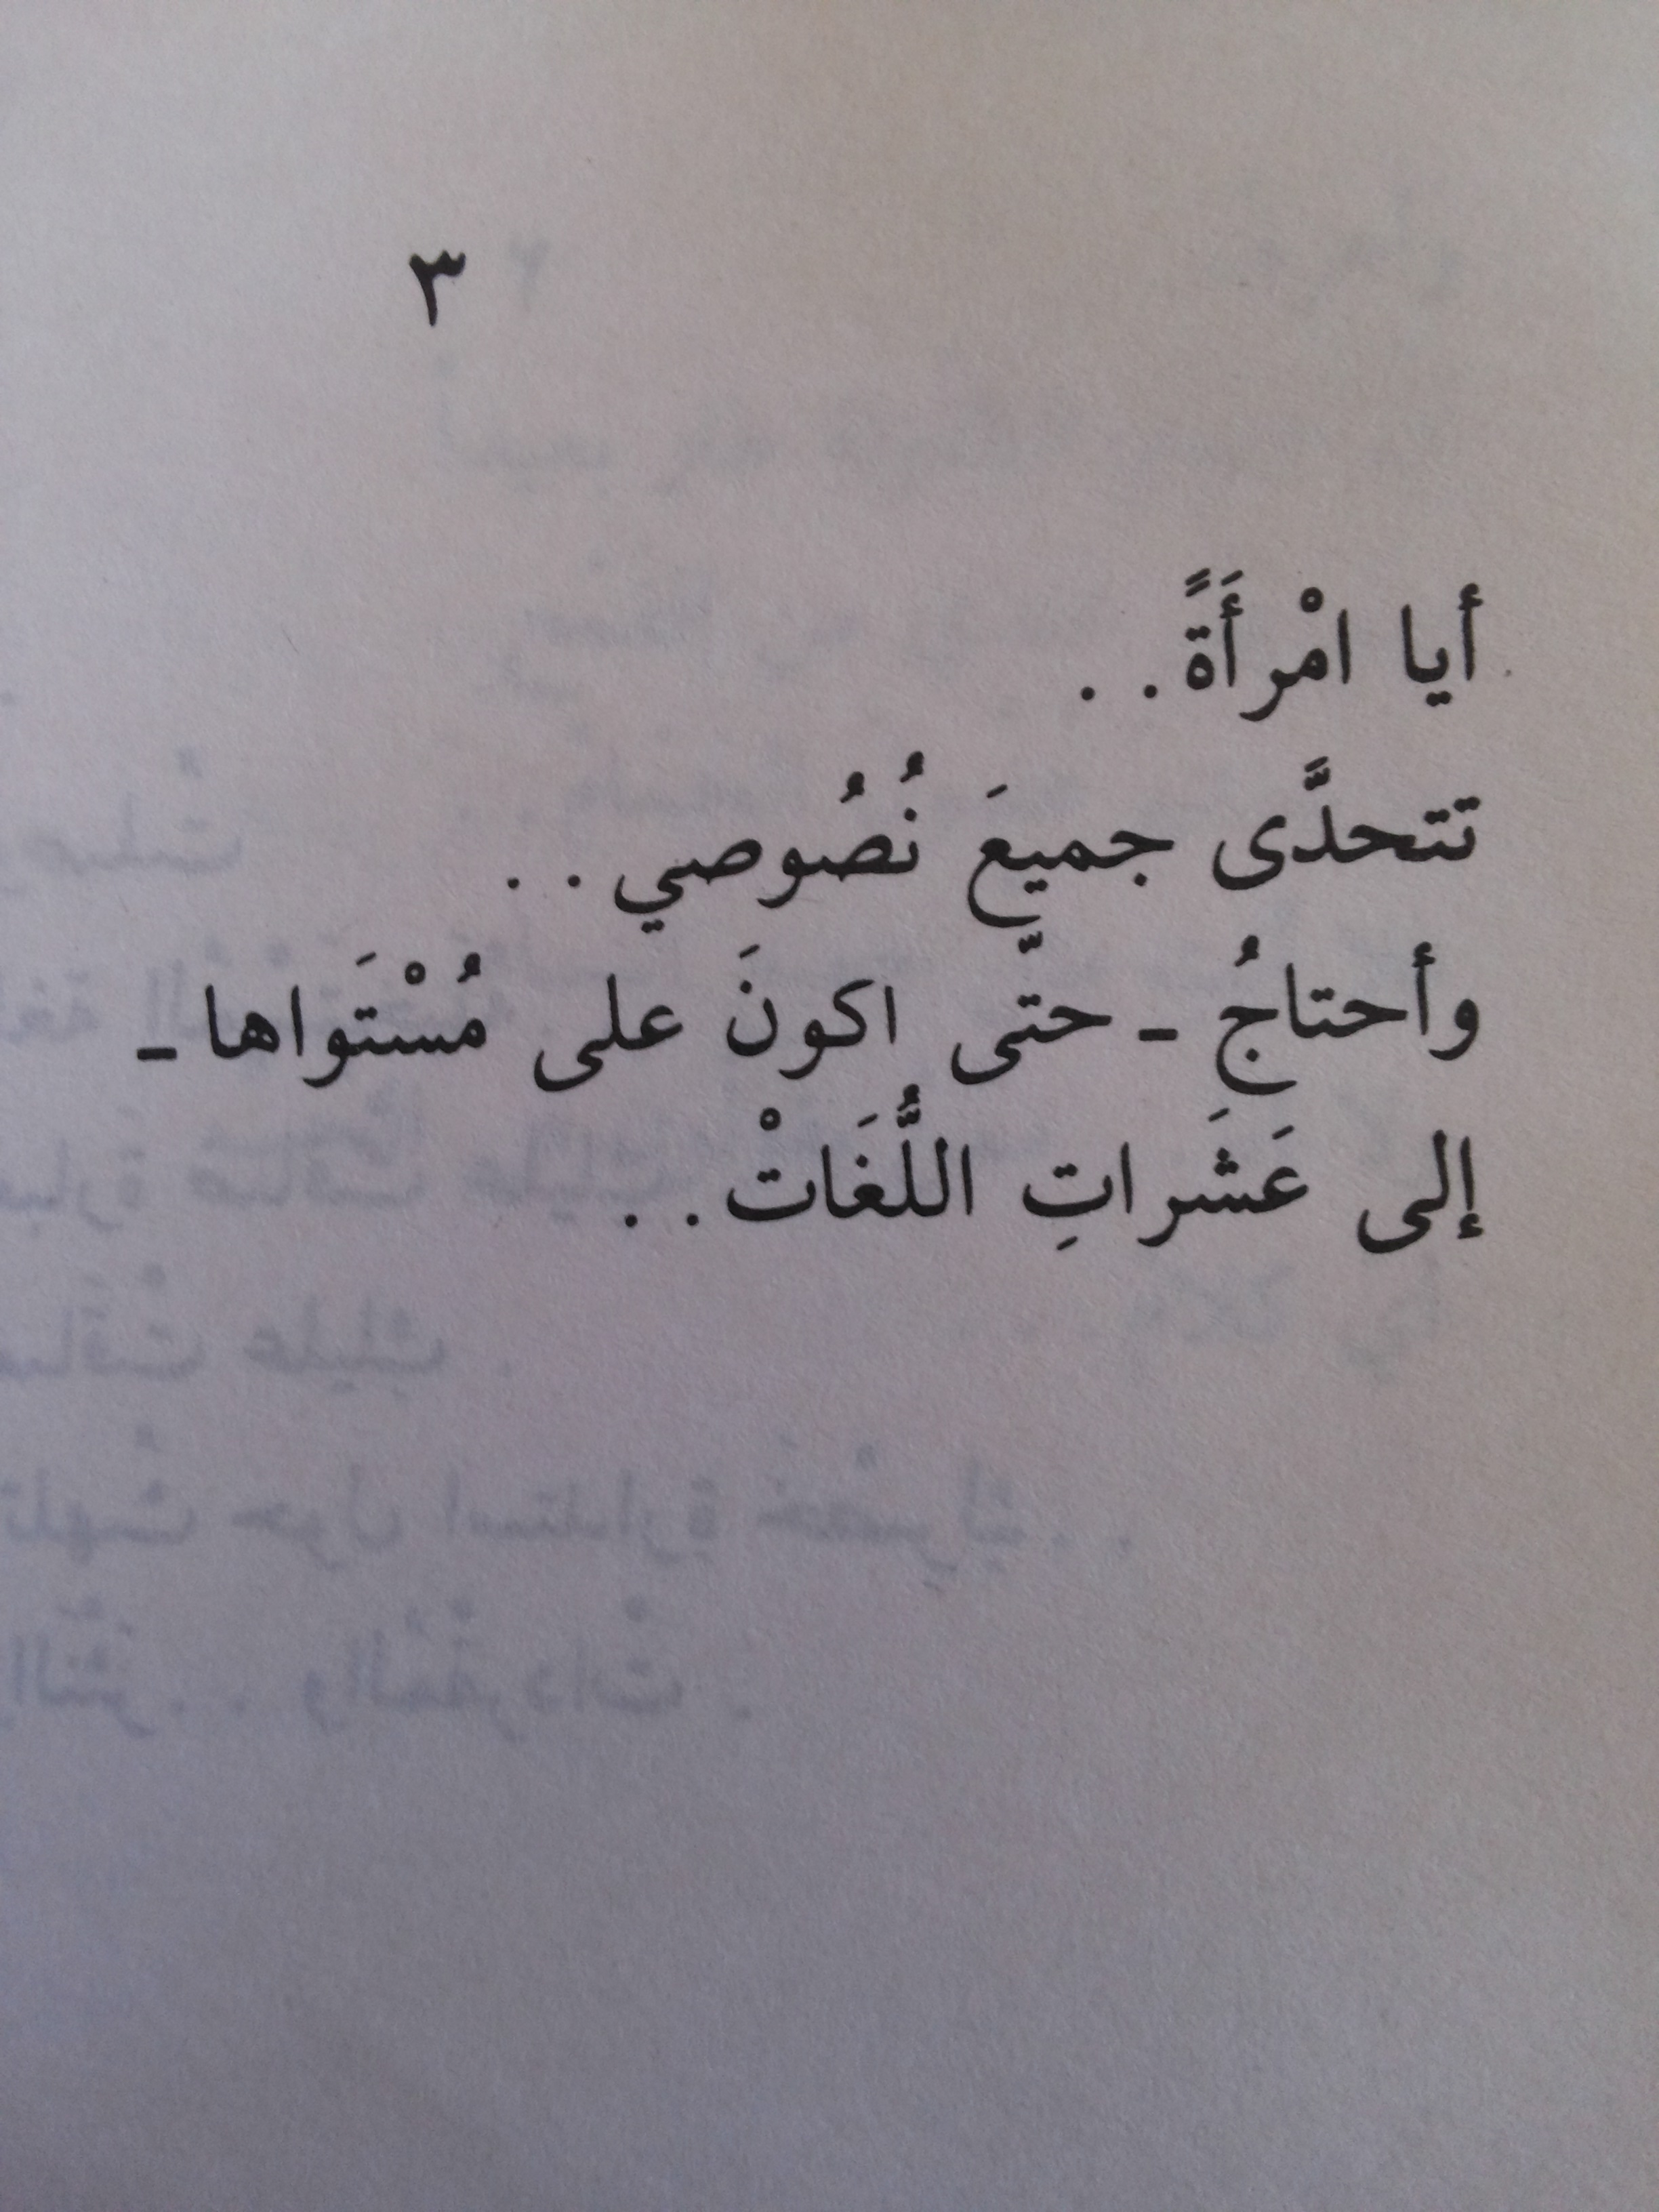 ٣
أيا امْرأَةً . .
تتحدَّى جميعَ نُصُوصي . .
وأحتاجُ - حتّى اكونَ على مُسْتَواها -
إلى عَشَراتِ اللُّغَاتْ . .